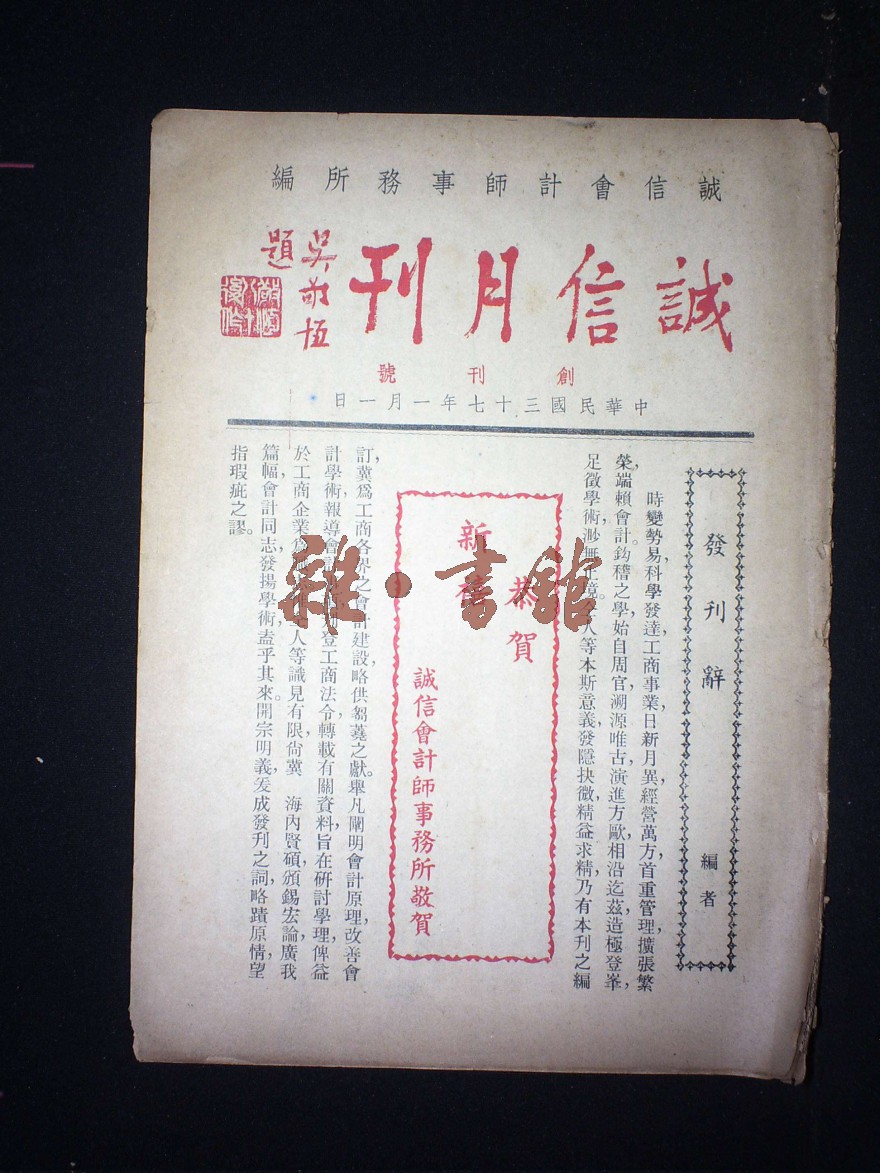 誠信會計師事務所編
誠信月刊
吳敬恆
題
創刊號
中華民國三十七年一月一日
發刊辭
編者
時變勢易,科學發達,工商事業,日新月異,經營萬方,首重管理,擴張繁
榮,端賴會計。鈎稽之學,始自周官,溯源唯古,演進方歐,相沿迄茲,造極登峯,
足徵學術,渺無止境。人等本斯意義,發隱抉微,精益求精,乃有本刊之編
恭賀
新禧
誠信會計師事務所敬賀
訂,冀爲工商各界之會計建設,略供芻蕘之獻。舉凡闡明會計原理,改善會
計學術,報導會計登工商法令,轉載有關資料,旨在研討學理,俾益
於工商企業人等識見有限,尙冀 海內賢碩,頒錫宏論,廣我
篇幅,會計同志,發揚學術,盍乎其來。開宗明義,爰成發刊之詞,略蹟原情,望
指瑕疵之謬。
雜·書館